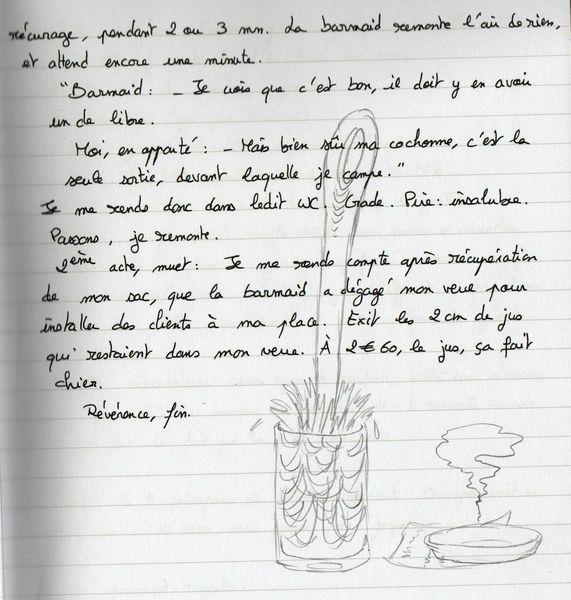 récurage, pendant 2 ou 3 mn. La barmaid remonte l'air de rien,
et attend encore une minute.
"Barmaid : - Je crois que c'est bon, il doit y en avoir
un de libre.
Moi, en apparté : - Mais bien sûr ma cochonne, c'est la
seule sortie, devant laquelle je campe."
Je me rends donc dans ledit WC. Crade. Pire : insalubre.
Passons, je remonte.
2ème acte, muet : Je me rends compte après récupération
de mon sac, que la barmaid a dégagé mon verre pour
installer des clients à ma place. Exit les 2 cm de jus
qui restaient dans mon verre. À 2€60, le jus, ça fait
chier.
Révérence, fin.